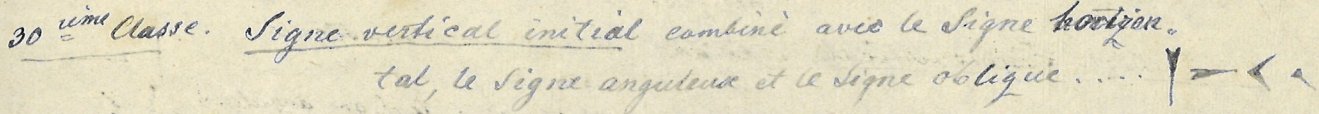 30 ième Classe. Signe vertical initial combiné avec le Signe horizon-
tal, le Signe anguleux et le Signe oblique .....